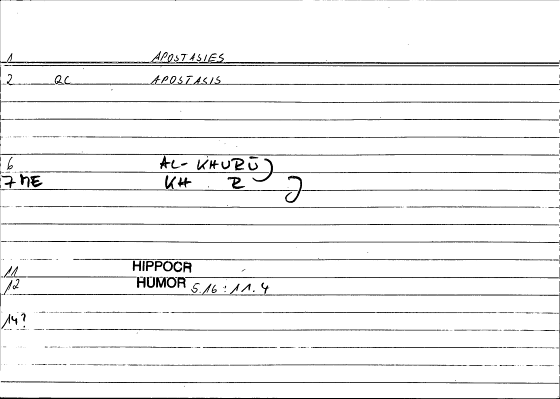 1 APOSTASIES
2 QC APOSTASIS
6 AL-KHURŪJ
7 ME KH R J
11 HIPPOCR
12 HUMOR 5.16 : 11.4
14?